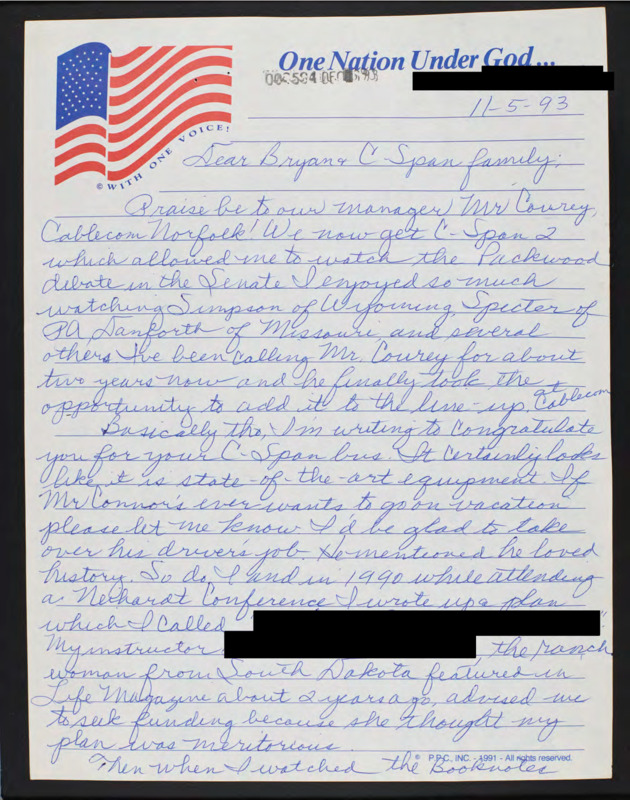 One Nation Under God...
002594 DEC 93
11-5-93
© WITH ONE VOICE!
Dear Bryan & C Span family:
Praise be to our manager, Mr Courey,
Cablecom Norfolk! We now get C-Span 2
which allowed me to watch the Packwood
debate in the Senate I enjoyed so much
watching Simpson of Wyoming, Specter of
PA Danforth of Missouri and several
others I've been calling Mr. Courey for about
two years now and he finally took the
opportunity to add it to the line-up at Cablecom
Basically tho, I'm writing to congratulate
you for your C-Span bus. It certainly looks
like it is state-of-the-art equipment. If
Mr Connor's ever wants to go on vacation
please let me know I'd be glad to take
over his driver's job. He mentioned he loved
history. So do I and in 1990 while attending
a Neihardt Conference I wrote up a plan
which I called "
My instructor , the ranch
woman from South Dakota featured in
Life Magazine about 2 years ago, advised me
to seek funding because she thought my
plan was meritorious.
© P.P.C., INC. - 1991 - All rights reserved.
Then when I watched the Booknotes